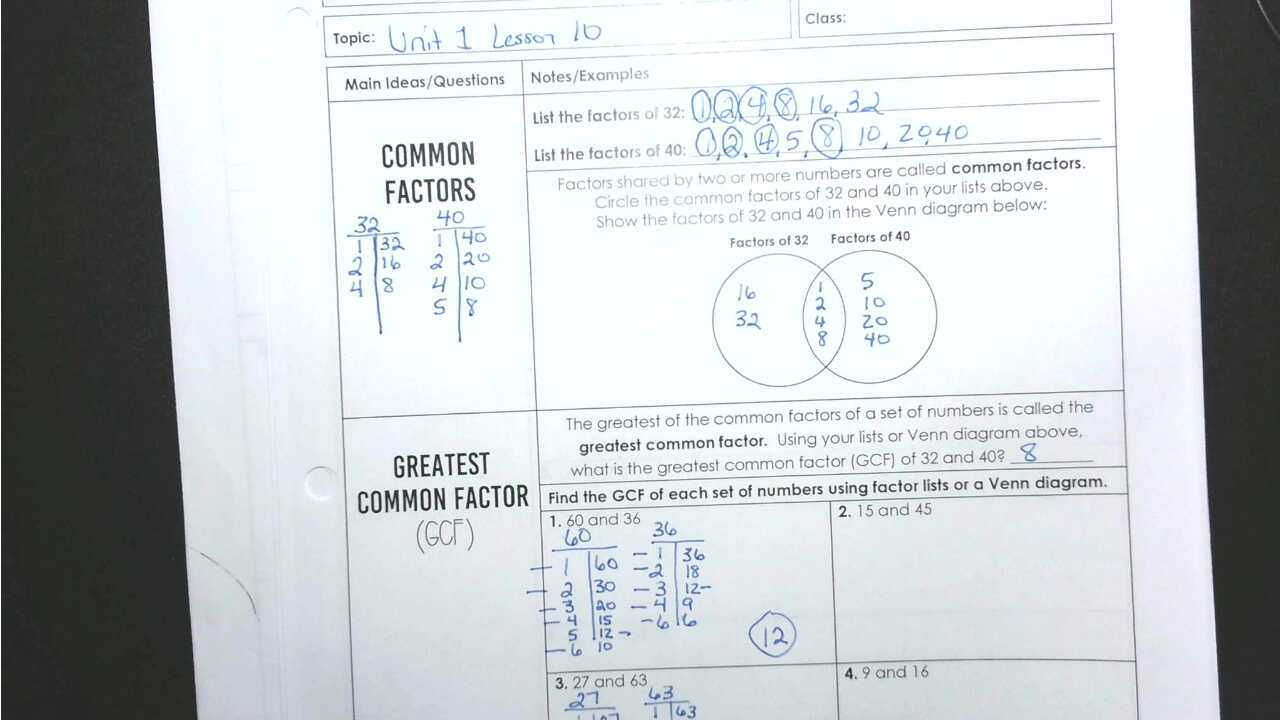 Topic: Unit 1 Lesson 10
Class:
Main Ideas/Questions
Notes/Examples
COMMON
FACTORS
32
1 32
2 16
4 8
40
1 40
2 20
4 10
5 8
List the factors of 32: 1, 2, 4, 8, 16, 32
List the factors of 40: 1, 2, 4, 5, 8, 10, 20, 40
Factors shared by two or more numbers are called common factors.
Circle the common factors of 32 and 40 in your lists above.
Show the factors of 32 and 40 in the Venn diagram below:
Factors of 32
Factors of 40
16
32
1
2
4
8
5
10
20
40
GREATEST
COMMON FACTOR
(GCF)
The greatest of the common factors of a set of numbers is called the
greatest common factor. Using your lists or Venn diagram above,
what is the greatest common factor (GCF) of 32 and 40? 8
Find the GCF of each set of numbers using factor lists or a Venn diagram.
1. 60 and 36
60
1 60
2 30
3 20
4 15
5 12
6 10
36
1 36
2 18
3 12
4 9
6 6
12
2. 15 and 45
3. 27 and 63
27
63
1 63
4. 9 and 16